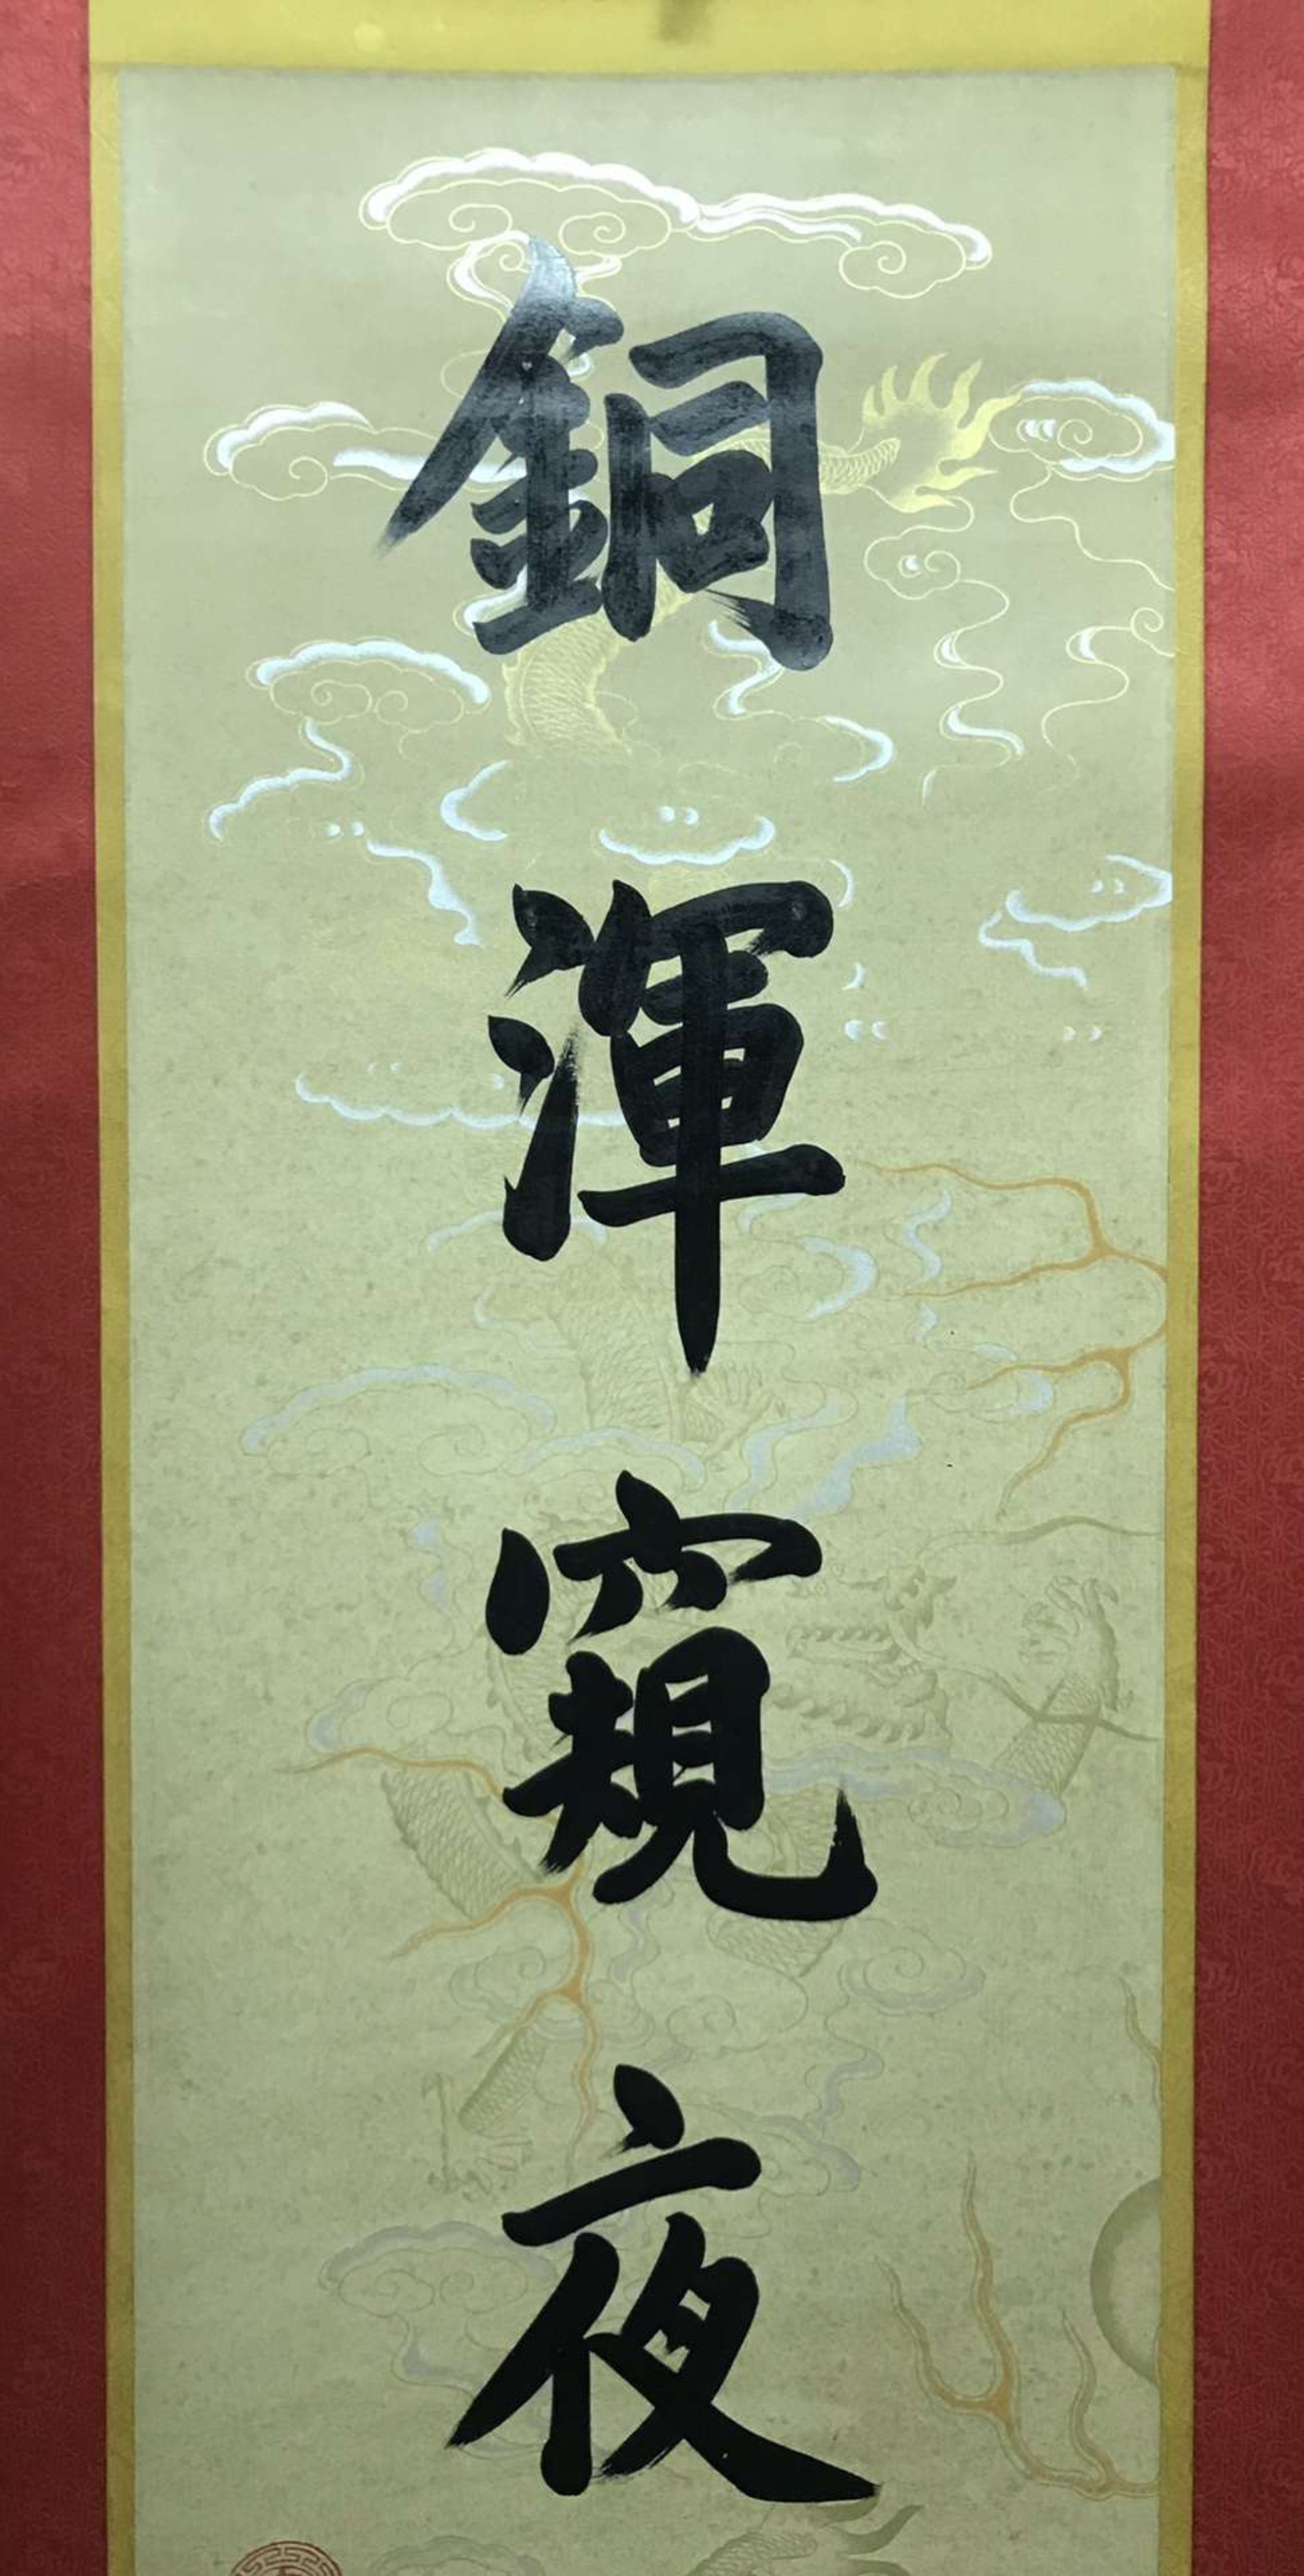 銅渾窺夜